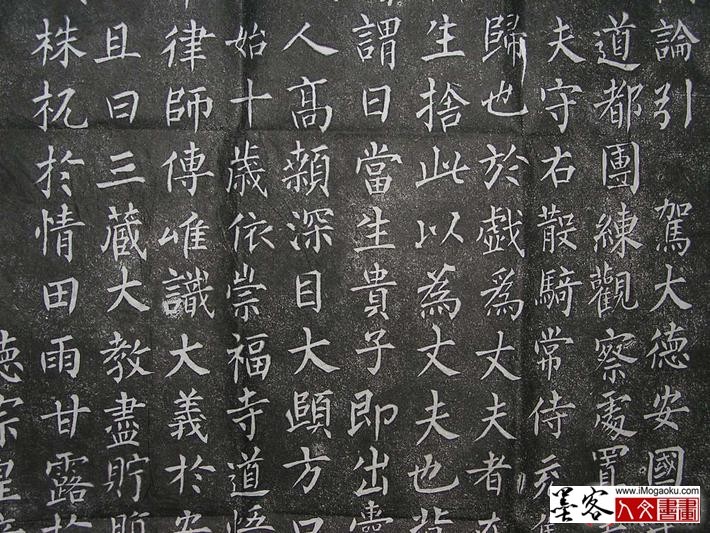 論引 駕大德安國
道都團練觀察處置
夫守右散騎常侍充
歸也於戲爲丈夫者在
生捨此以為丈夫也背
謂曰當生貴子即出囊
人高顙深目大頤方口
始十歲依崇福寺道悟
律師傳唯識大義於安
且曰三藏大教盡貯
株杌於情田雨甘露於
德宗皇
墨客
www.iMogaoku.com
人文書畫